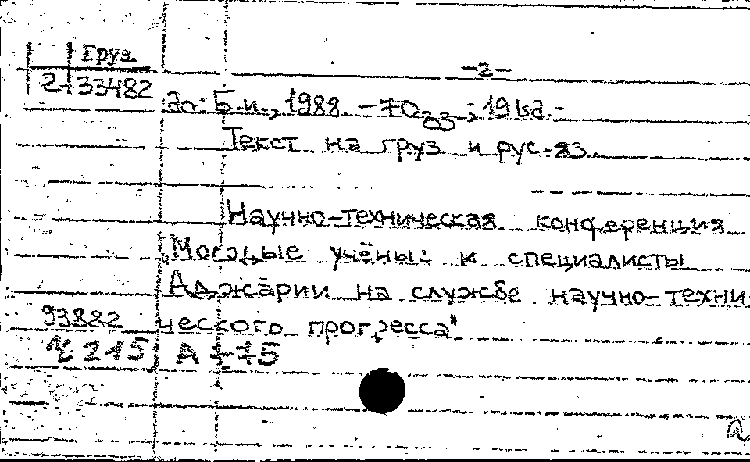 Груз
-2-
2-33482
до: Б.и., 1988. - 70 с. ; 19 см. -
Текст на груз и рус. яз.
Научно-техническая конференция
"Молодые учёные и специалисты
Аджарии на службе научно-техни-
93882 ческого прогресса"
215 А 1-75